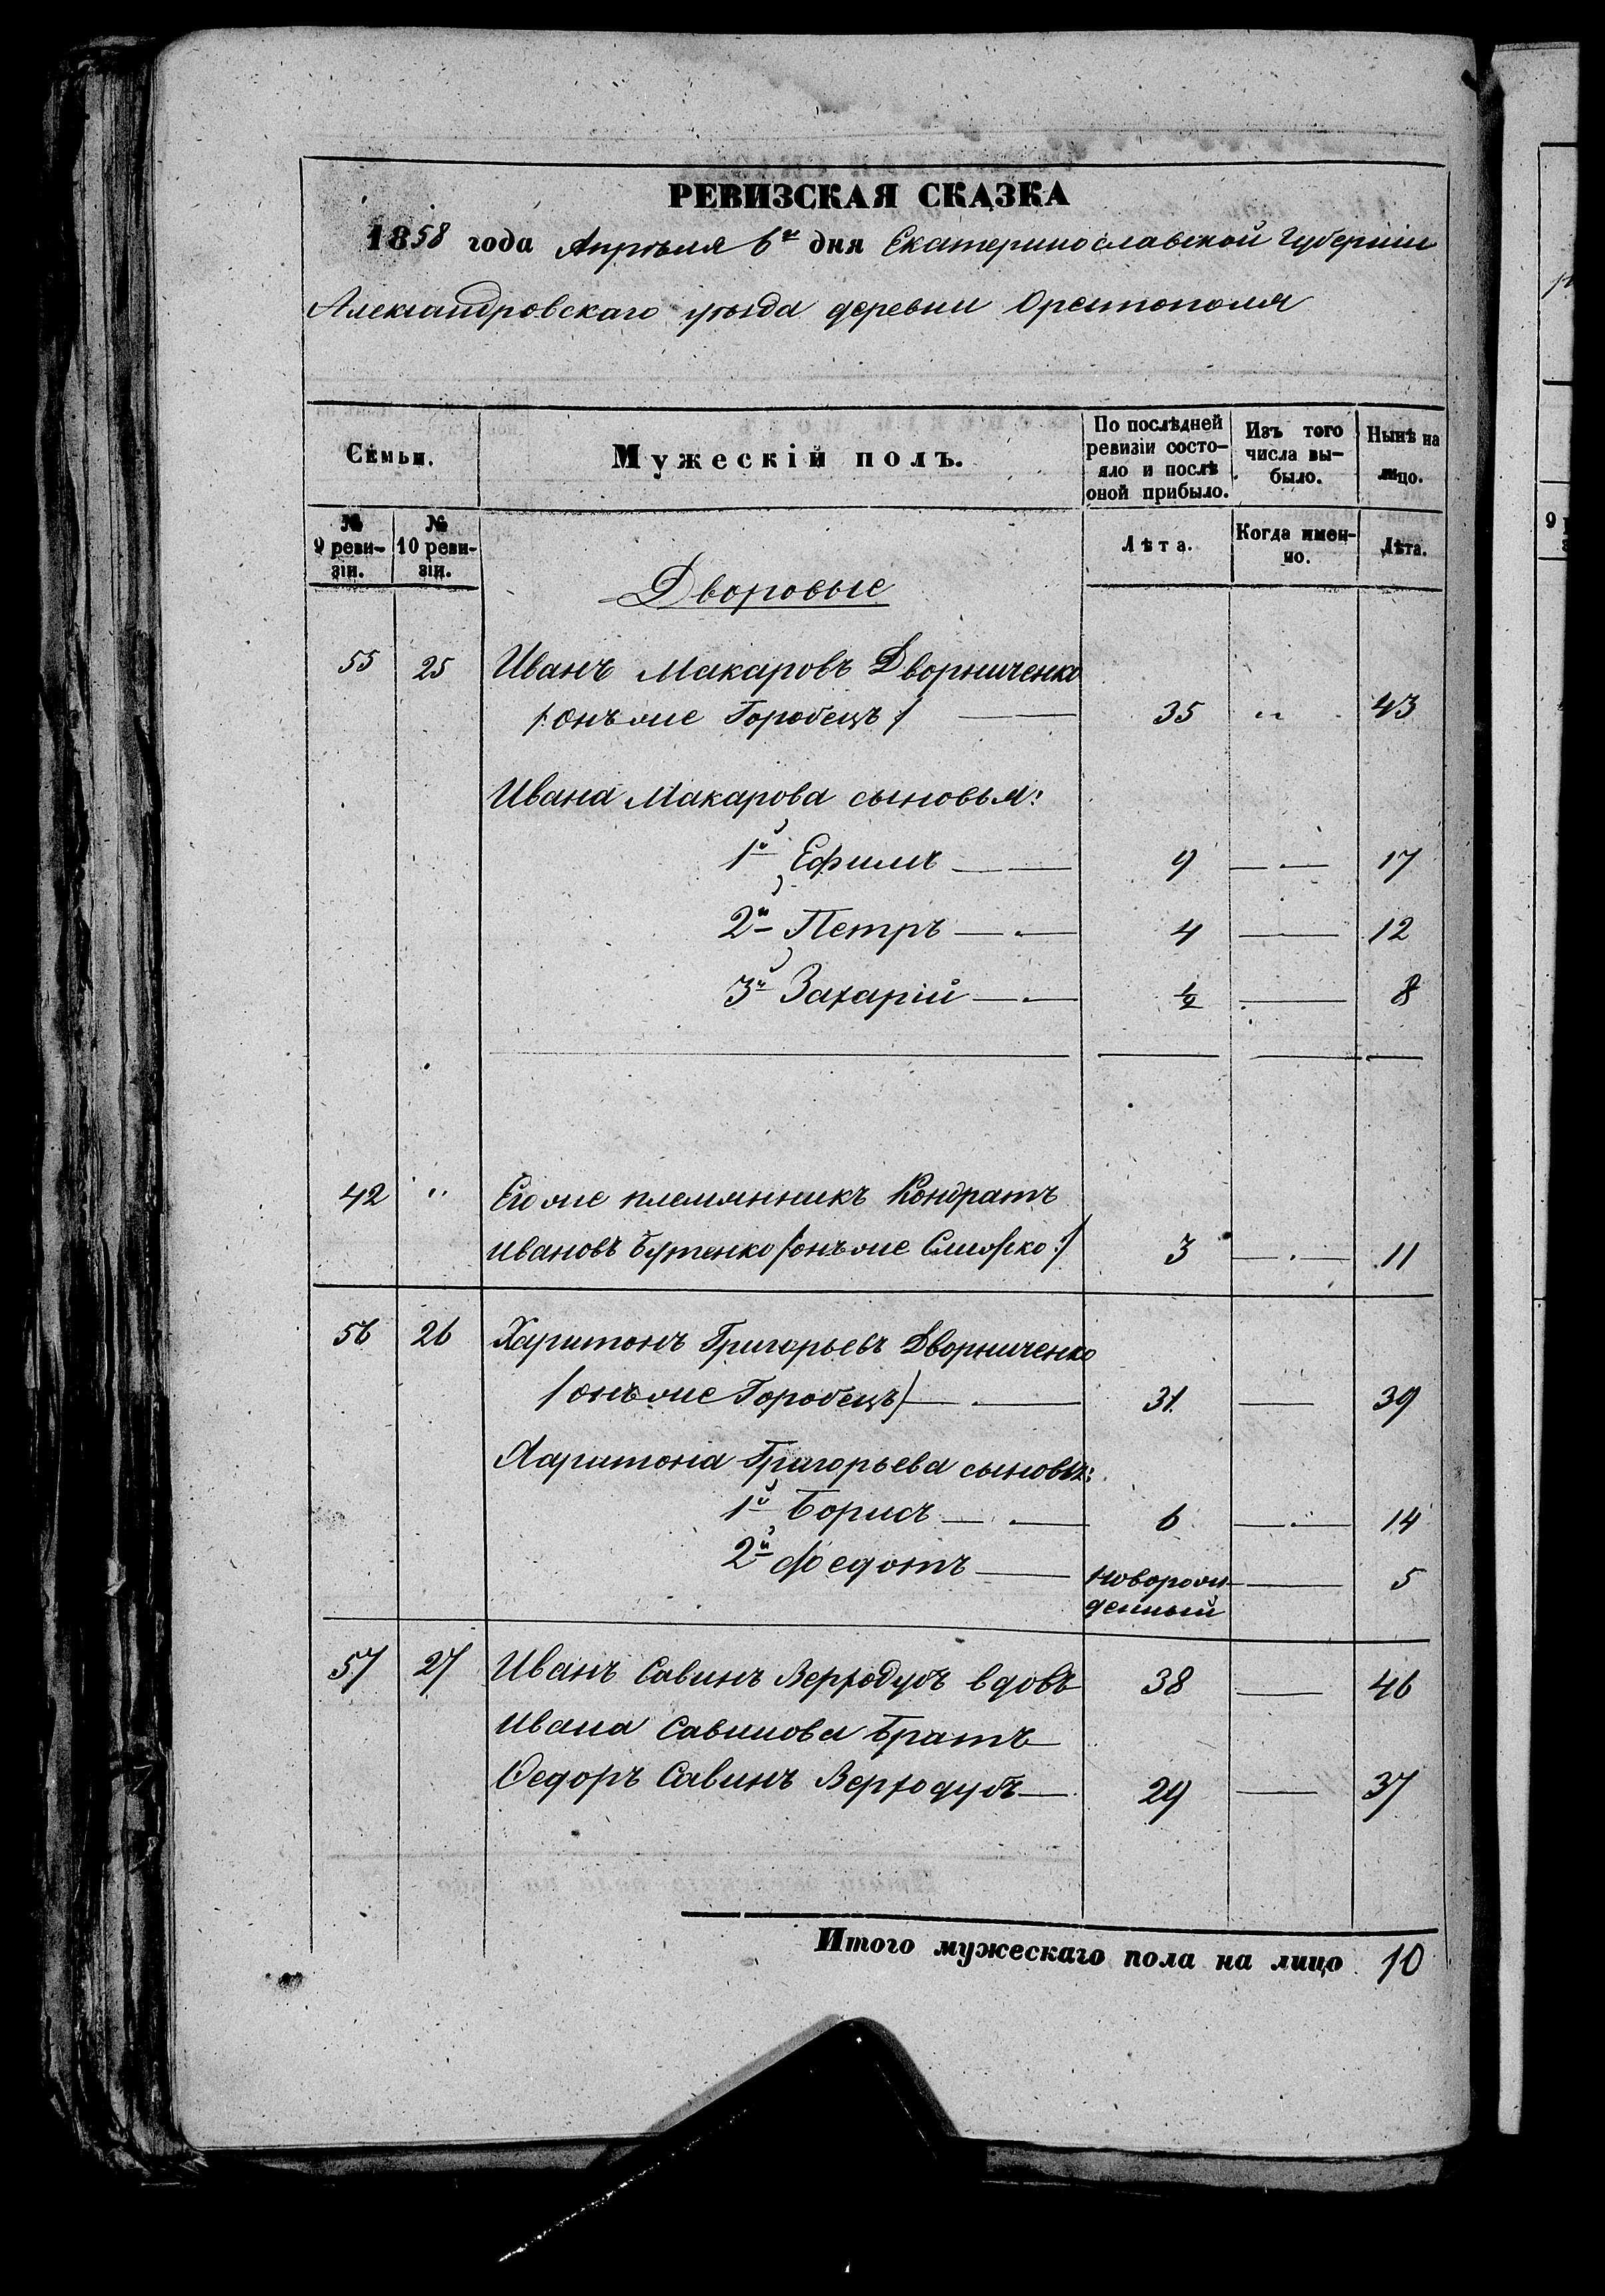 РЕВИЗСКАЯ СКАЗКА
1858 года Апрѣля 6го дня Екатеринославской Губерніи
Александровскаго уѣзда деревни Орестополя
Семьи.
Мужескій полъ.
По послѣдней ревизіи состо-
яло и послѣ
оной прибыло.
Изъ того
числа вы-
было.
Нынѣ на
лицо.
№
9 реви-
зіи.
№
10 реви-
зіи.
Лѣта.
Когда имен-
но.
Лѣта.
Дворовые
55 25 Иванъ Макаровъ Дворниченко
/:онъ же Горобецъ:/ 35 " 43
Ивана Макарова сыновья:
1й Ефимъ 9 17
2й Петръ 4 12
3й Захарій ½ 8
42 " Его же племянникъ Кондратъ
Ивановъ Бутенко /онъ же :/ 3 11
56 26 Харитонъ Григорьевъ Дворниченко
/онъ же Горобецъ/ 31 39
Харитона Григорьева сыновья:
1й Борисъ 6 14
2й Федотъ новорож-
денный 5
57 27 Иванъ Савинъ Верходубъ вдовъ 38 46
Ивана Савинова братъ
Ѳедоръ Савинъ Верходубъ 29 37
Итого мужескаго пола на лицо 10